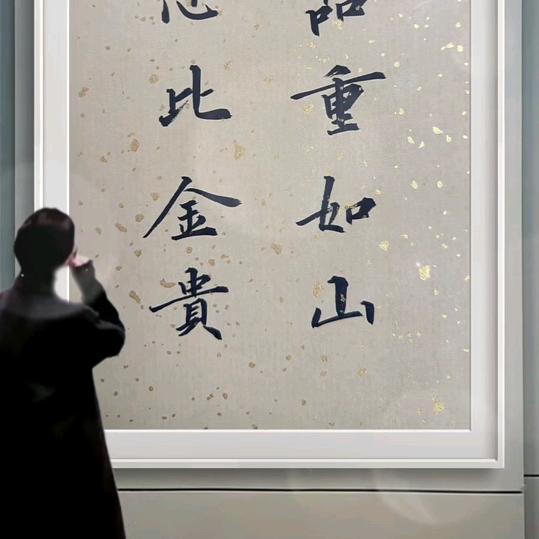 品重如山
比金貴